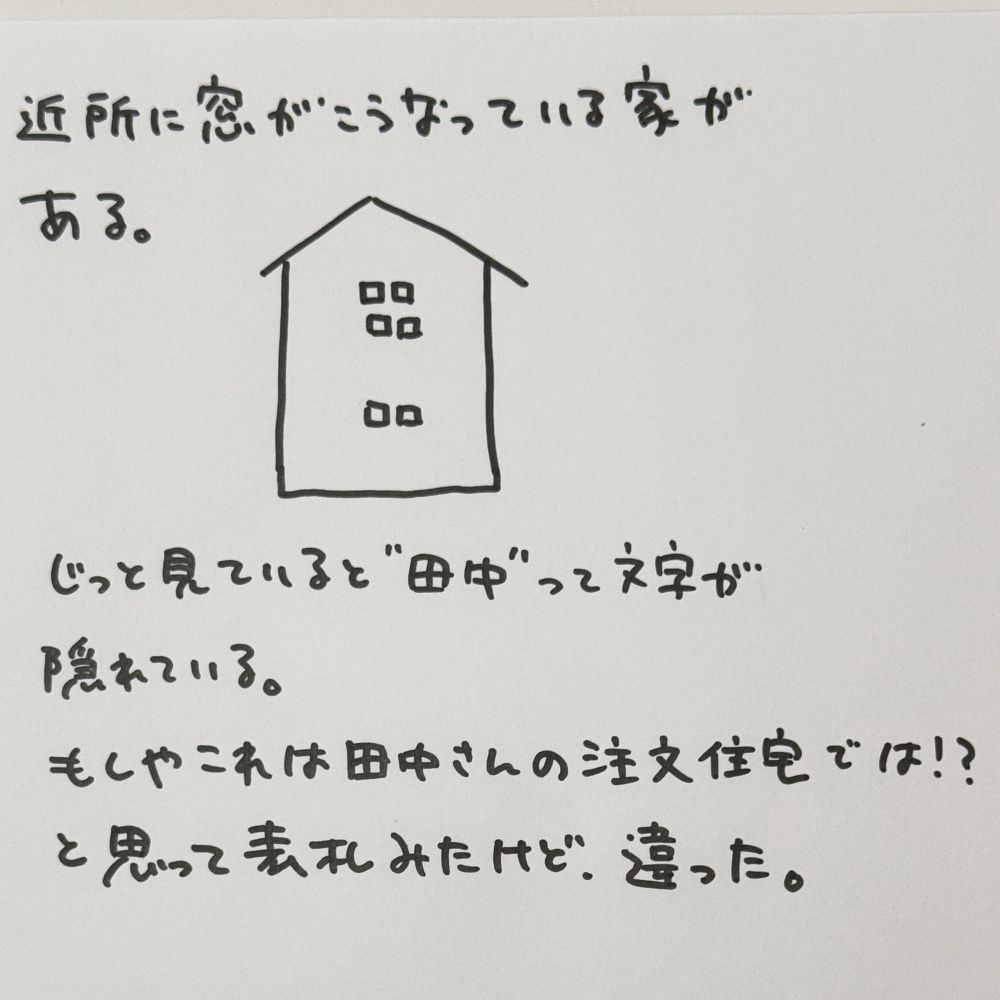 近所に窓がこうなっている家が
ある。
じっと見ていると"田中"って文字が
隠れている。
もしやこれは田中さんの注文住宅では!?
と思って表札みたけど、違った。